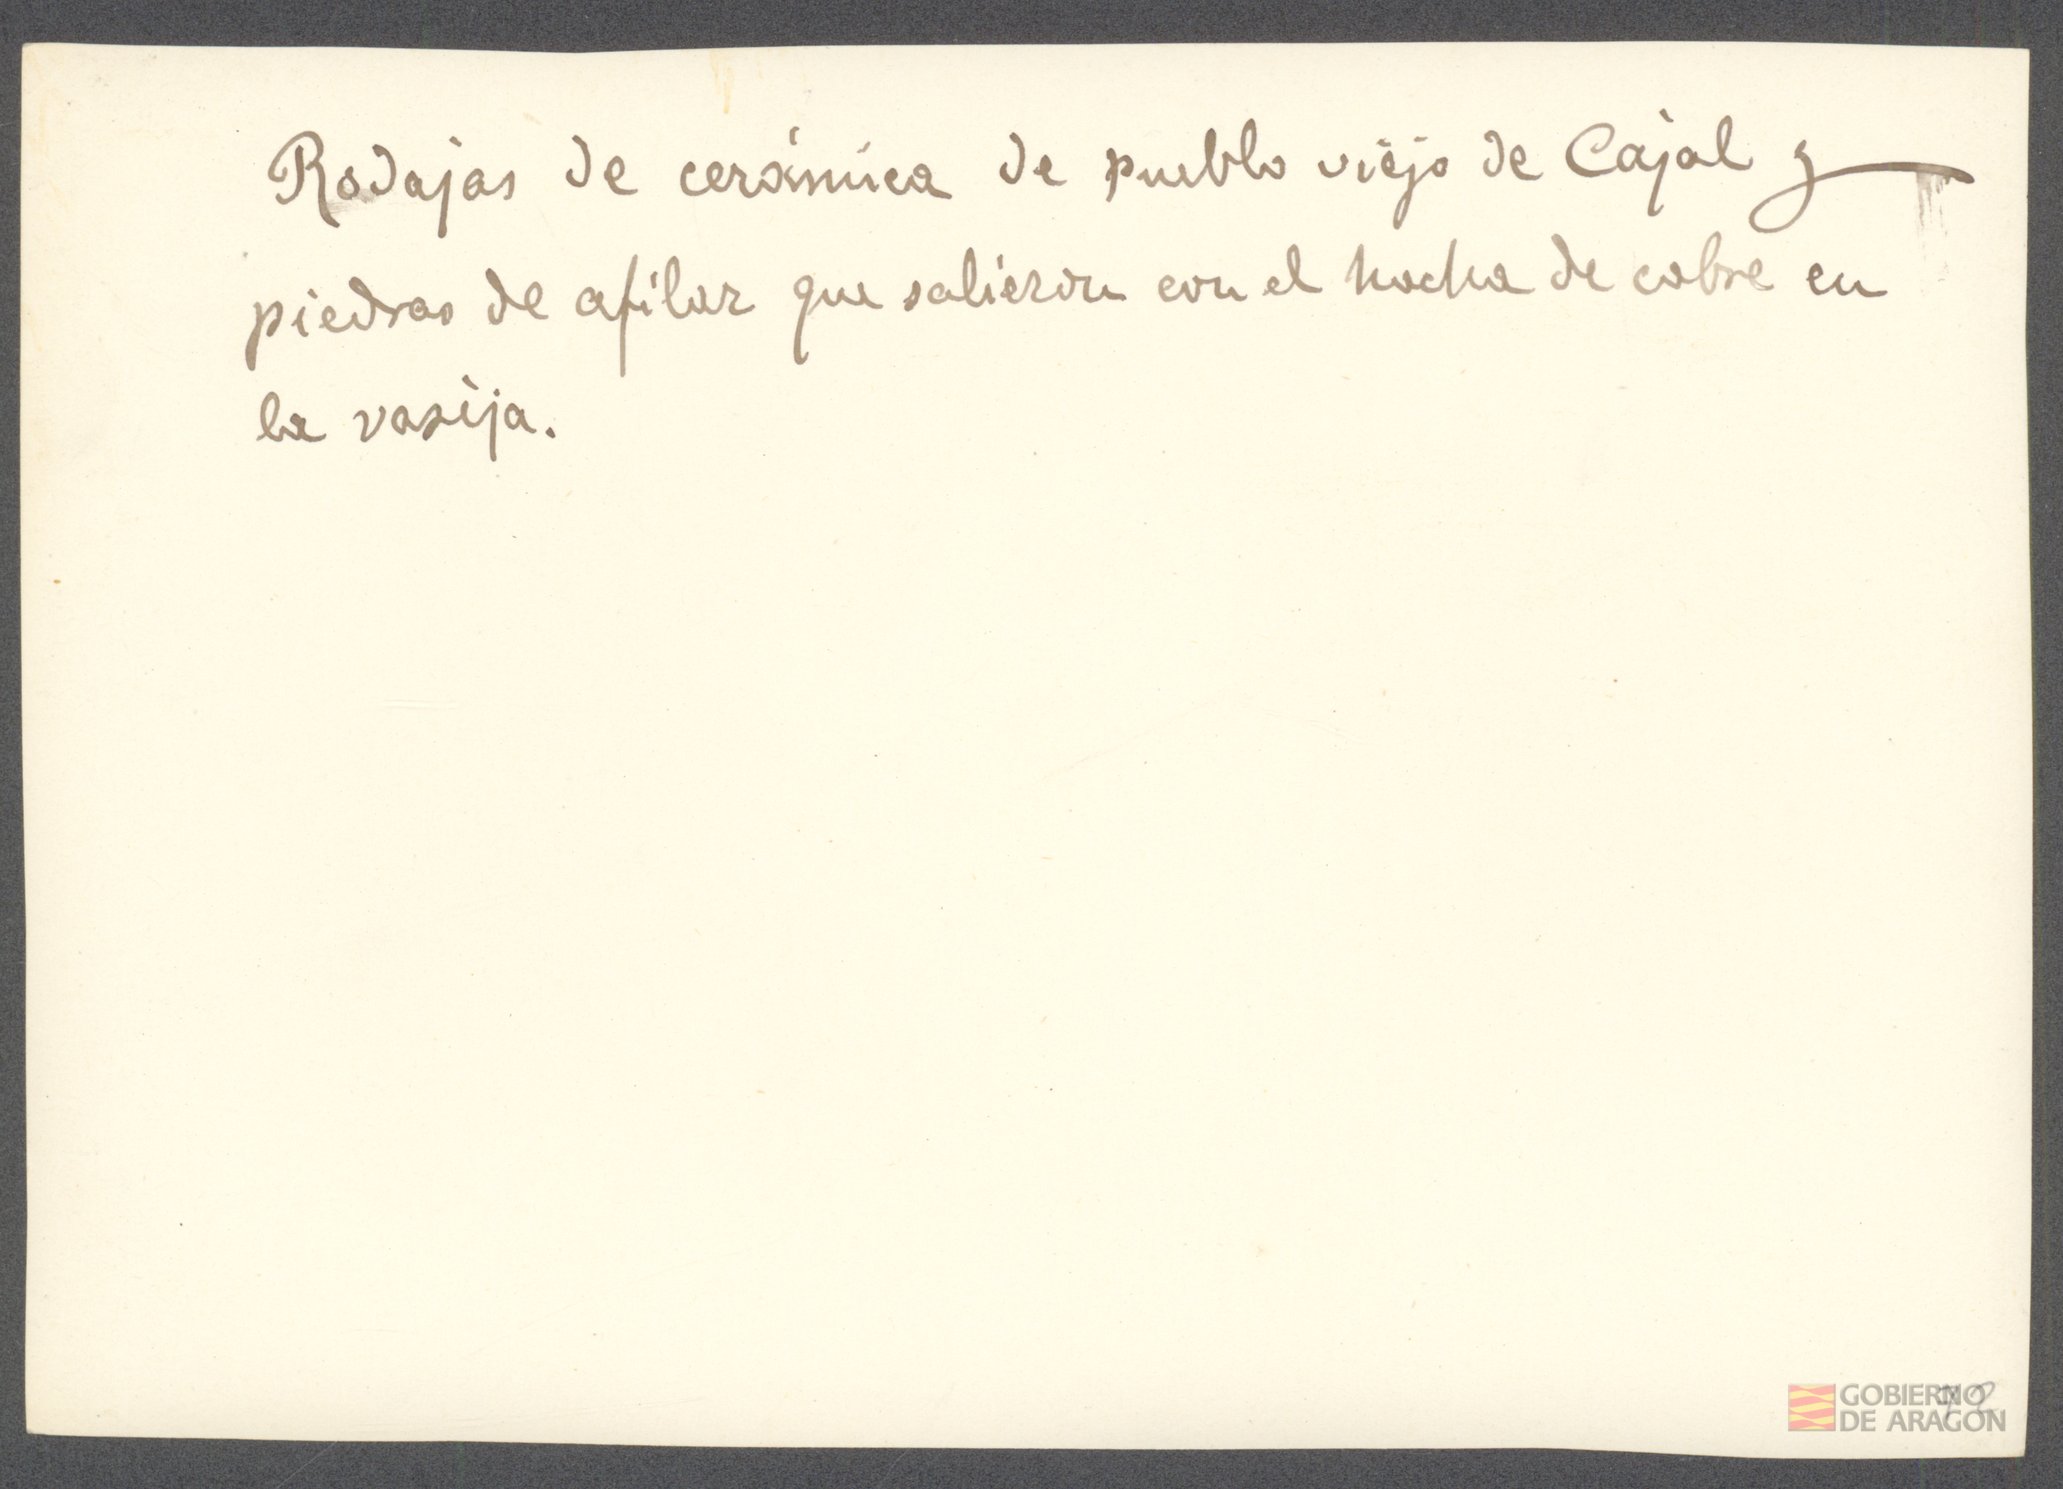 Rodajas de cerámica de pueblo viejo de Cajal y
piedras de afilar que salieron con el hacha de cobre en
la vasija.
GOBIERNO
DE ARAGON